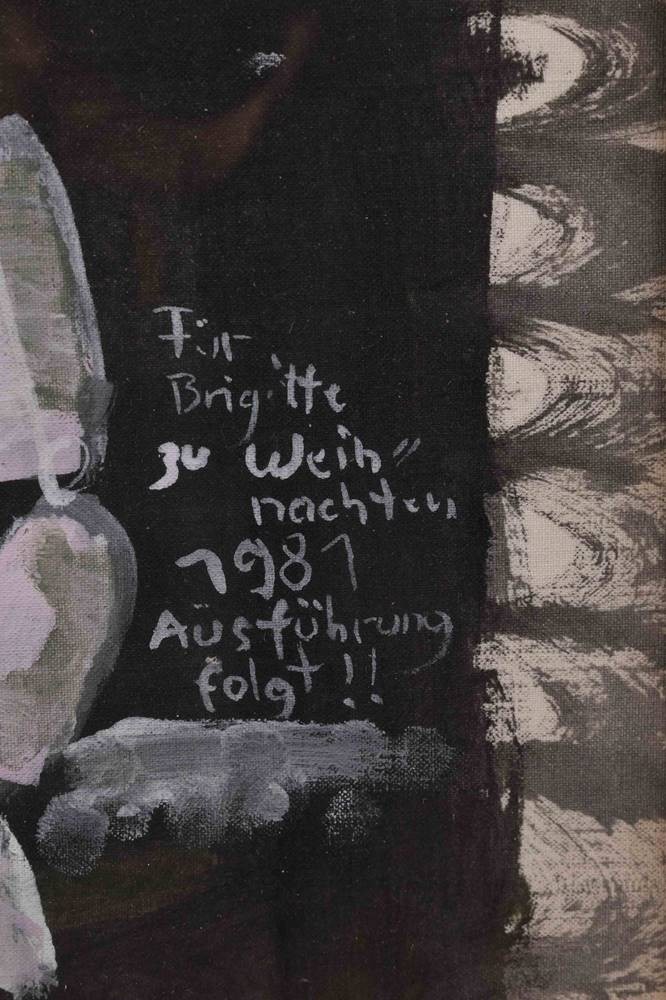 Für
Brigitte
zu Weih〃
nachten
1981
Aüsführung
folgt!!